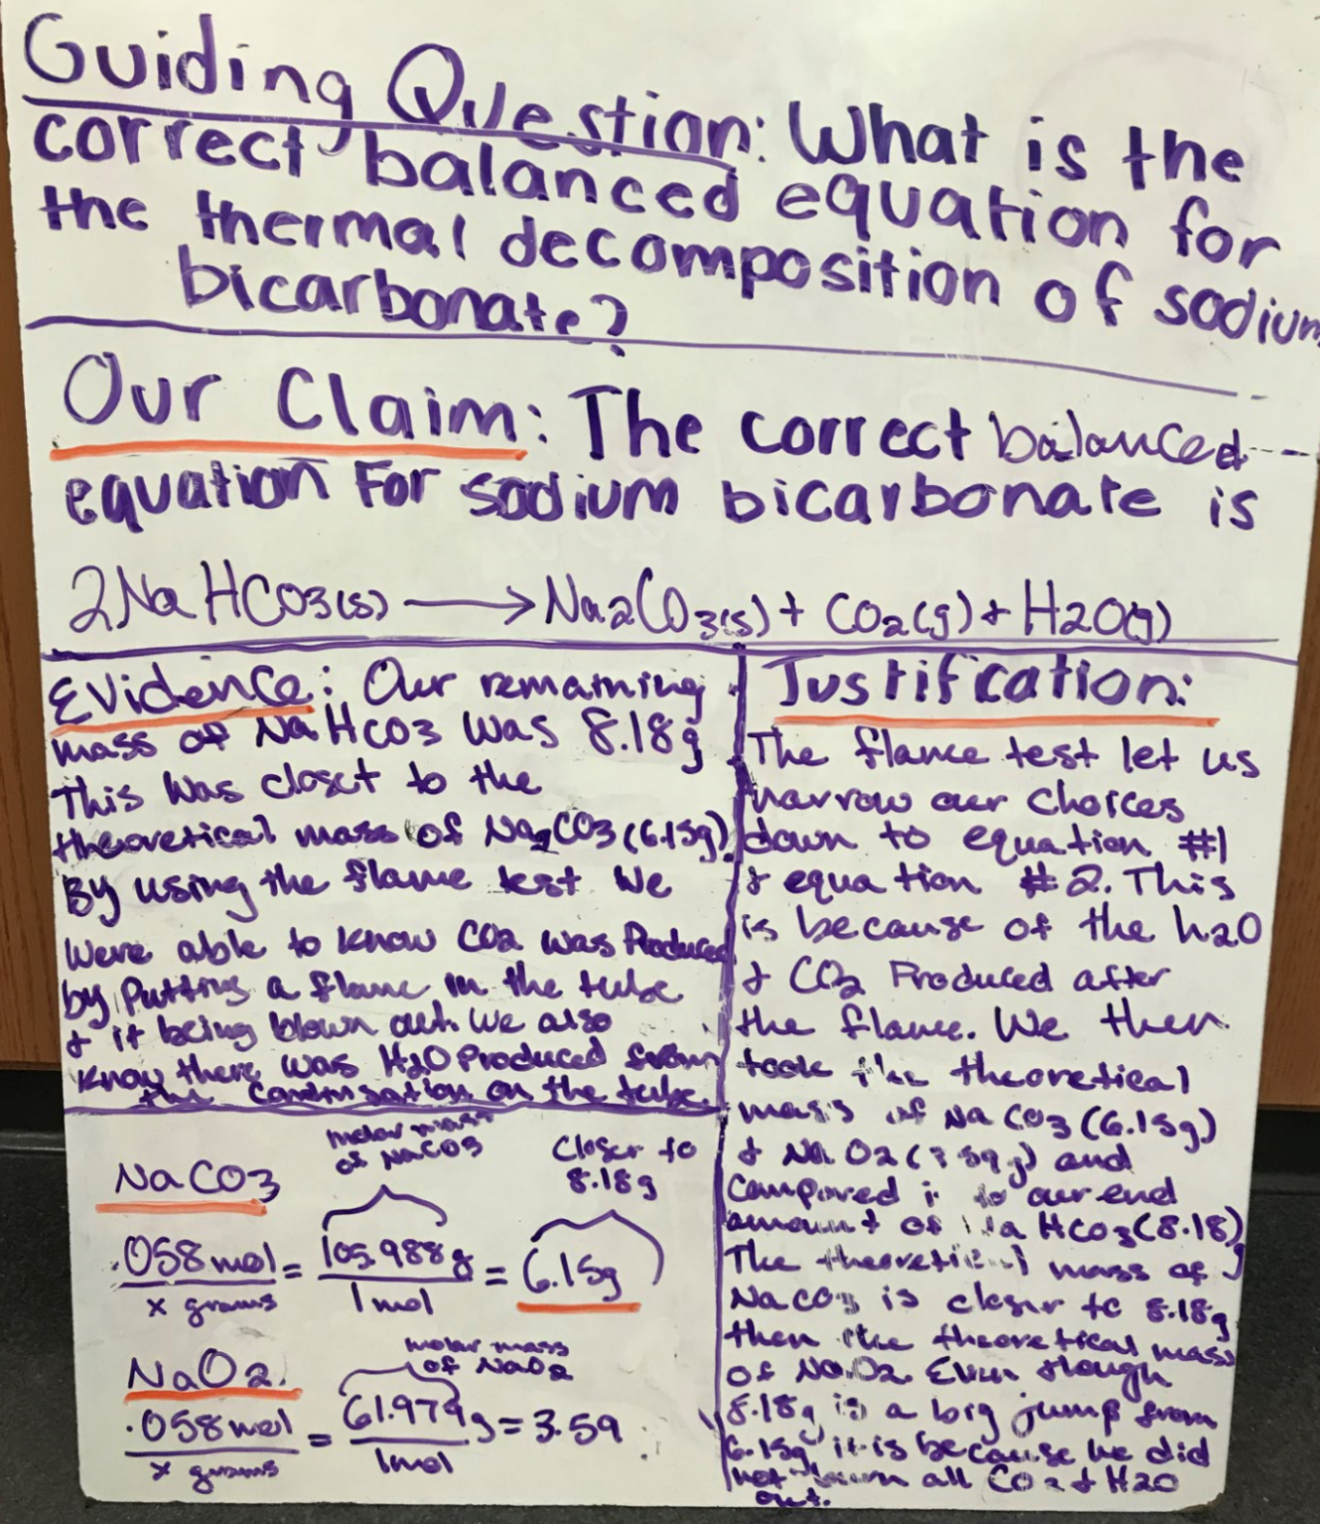 Guiding Question: What is the
correct balanced equation for
the thermal decomposition of sodium
bicarbonate?
Our Claim: The correct balanced
equation For sodium bicarbonate is
2NaHCO3(s) → Na2CO3(s) + CO2(g) + H2O(g)
Evidence: Our remaining
mass of NaHCO3 was 8.18g
This was closet to the
theoretical mass of Na2CO3 (6.15g)
By using the flame test we
were able to know CO2 was Produced
by putting a flame in the tube
& it being blown out. We also
know there was H2O Produced from
the condensation on the tube.
Justification:
The flame test let us
narrow our choices
down to equation #1
& equation #2. This
is because of the h2O
& CO2 Produced after
the flame. We then
took the theoretical
mass of NaCO3 (6.15g)
& NaO2 and
compared to our end
amount of NaHCO3 (8.18)
The theoretical mass of
NaCO3 is closer to 8.18g
then the theoretical mass
of NaO2. Even though
8.18g is a big jump from
6.15g it is because we did
not burn all CO2 & H2O
out.
NaCO3
molar mass
of NaCO3
Closer to
8.18g
.058mol / x grams = 105.988g / 1mol = 6.15g
NaO2
molar mass
of NaO2
.058mol / x grams = 61.979g / 1mol = 3.59